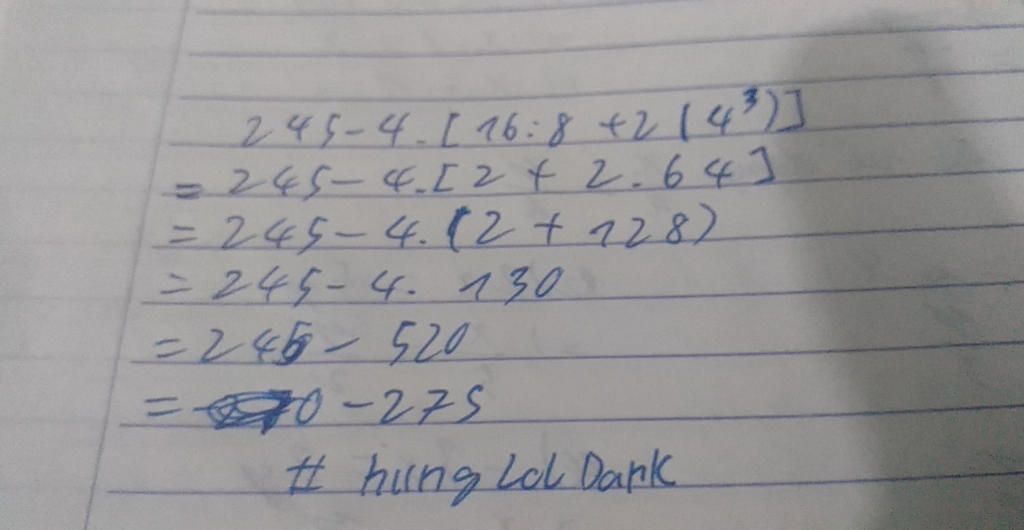 245-4.[16:8+2(4³)]
=245-4.[2+2.64]
=245-4.(2+128)
=245-4.130
=245-520
=0-275
# hungLolDark